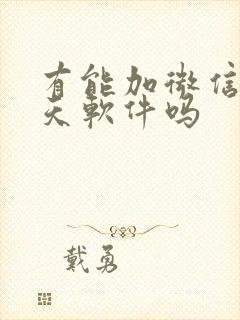 有能加微信
天軟件吗
戴勇